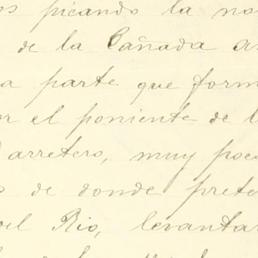 os picando la no
de la Cañada an
a parte que form
or el poniente de l
arretero, muy poc
s de donde prete
del Rio, levantar